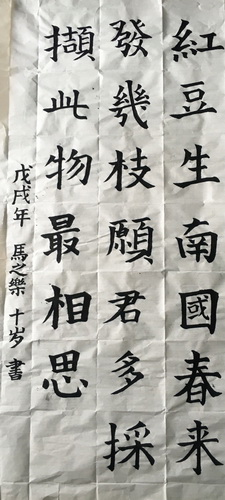 紅豆生南國春来
發幾枝願君多採
擷此物最相思
戊戌年 馬之樂 十岁 書